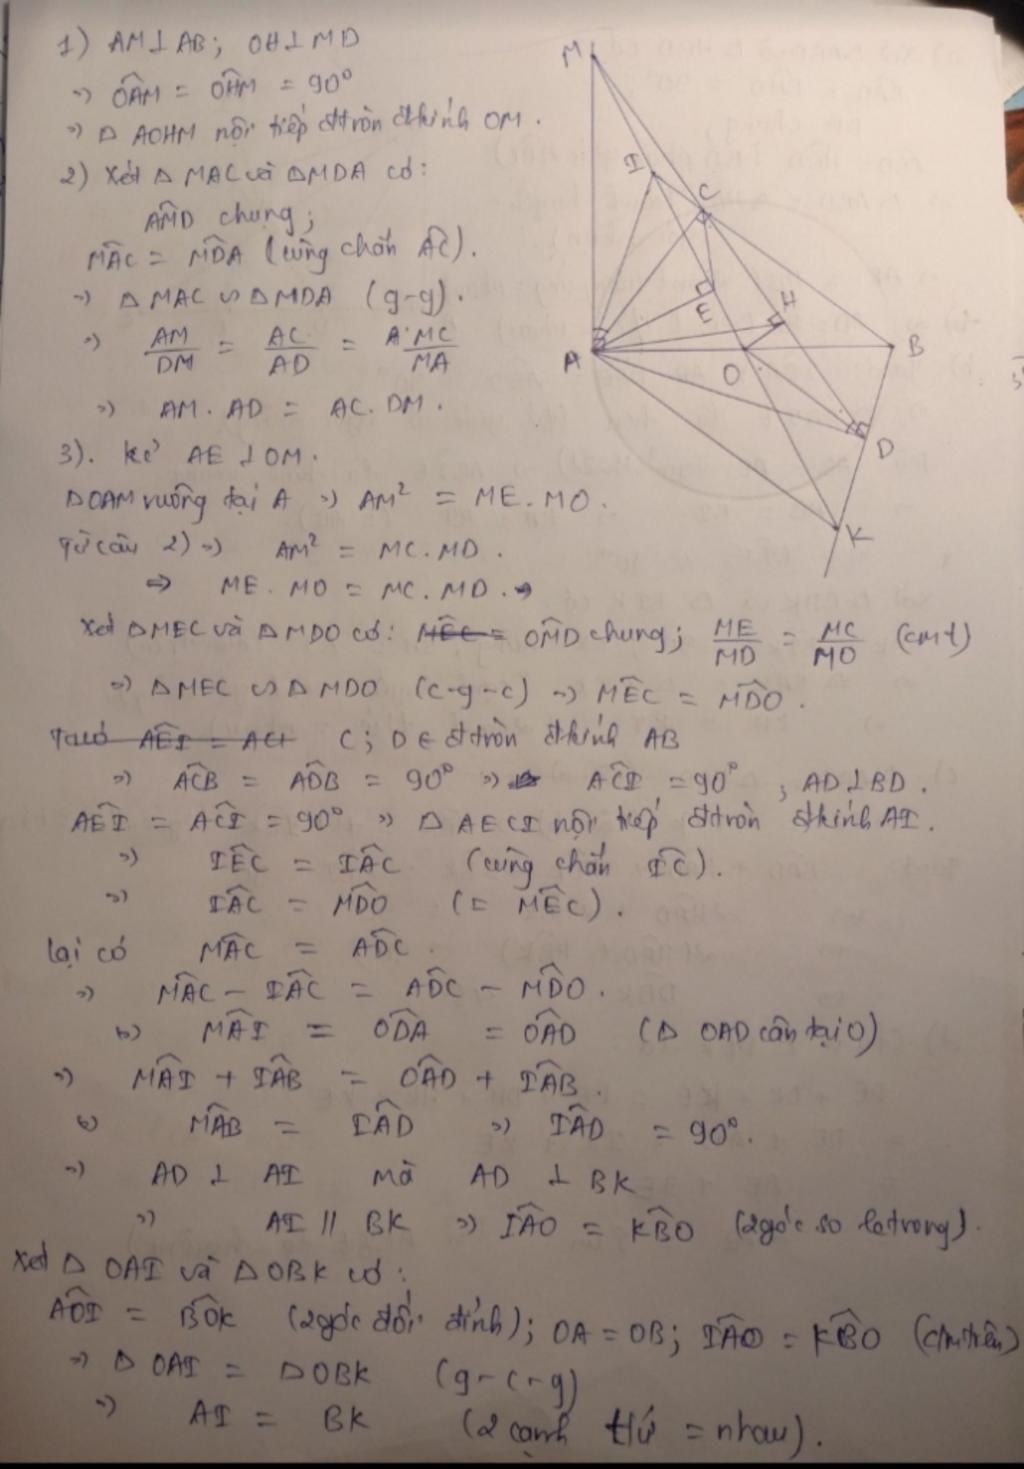 1) AM⊥AB; OH⊥MD
=> OÂM = OĤM = 90°
=> ◊ AOHM nội tiếp đtròn đkính OM.
2) Xét △ MAC và △MDA có:
AM̂D chung;
MÂC = MD̂A (cùng chắn AC).
=> △ MAC ∽ △MDA (g-g).
=> AM/DM = AC/AD = MC/MA
=> AM. AD = AC. DM.
3). Kẻ AE ⊥OM.
△OAM vuông tại A => AM² = ME. MO.
Từ câu 2) => AM² = MC. MD.
=> ME. MO = MC. MD.
Xét △MEC và △MDO có: OM̂D chung; ME/MD = MC/MO (cmt)
=> △MEC ∽ △ MDO (c-g-c) => MÊC = MD̂O.
C; D ∈ đtròn đkính AB
=> AĈB = AD̂B = 90° => AĈI = 90°, AD⊥BD.
AÊI = AĈI = 90° => ◊ AECI nội tiếp đtròn đkính AI.
=> IÊC = IÂC (cùng chắn IC).
=> IÂC = MD̂O (= MÊC).
lại có MÂC = AD̂C.
=> MÂC - IÂC = AD̂C - MD̂O.
MÂI = OD̂A = OÂD (△ OAD cân tại O)
=> MÂI + IÂB = OÂD + IÂB.
MÂB = IÂD => IÂD = 90°.
=> AD ⊥ AI mà AD ⊥ BK
=> AI // BK => IÂO = KB̂O (2góc so le trong).
Xét △ OAI và △OBK có:
AÔI = BÔK (2góc đối đỉnh); OA = OB; IÂO = KB̂O (cm trên)
=> △ OAI = △OBK (g-c-g)
=> AI = BK (2 cạnh tứ = nhau).
M
I
C
E
H
A
O
B
D
K